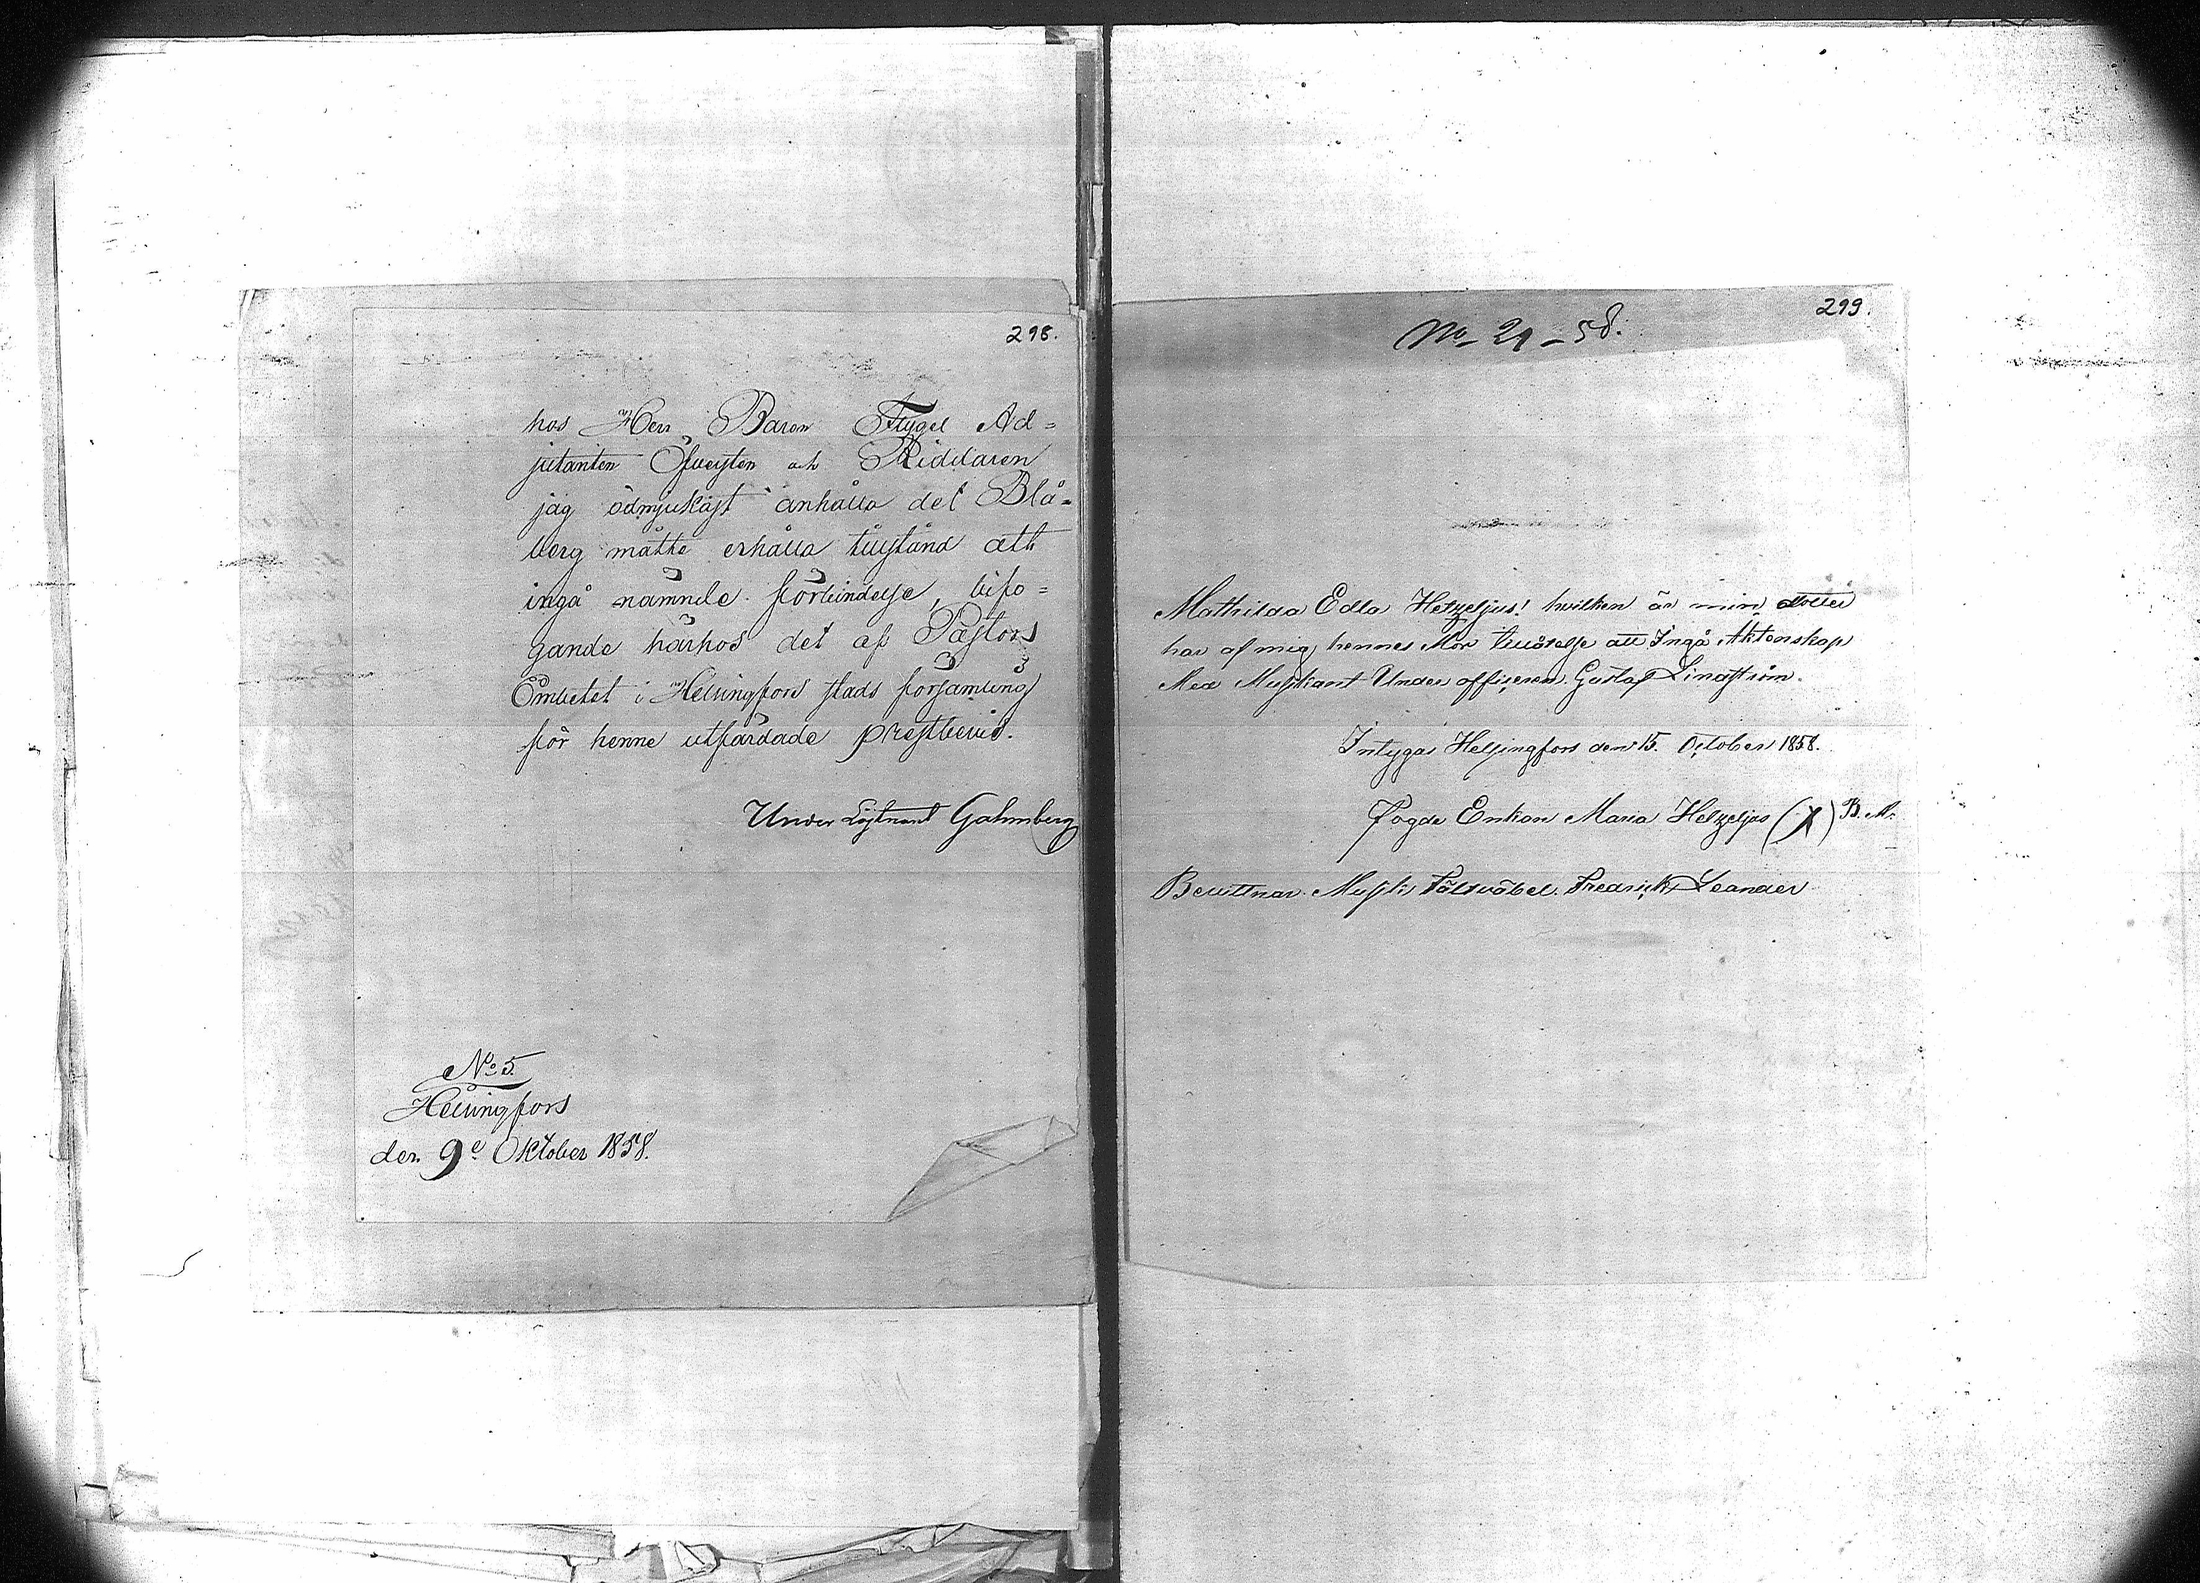 298.
hos Herr Baron Flygel Ad=
jutanten Öfversten och Riddaren
jag ödmjukast anhålla det Blå=
berg måtte erhålla tillstånd att
ingå nämnde förbindelse, bifo=
gande härhos det af Pastors
Embetet i Helsingfors stads församling
för henne utfärdade prestbevis.
Under Löjtnant Gahmberg
No 5.
Helsingfors
den 9e Oktober 1858.
299.
No 21 – 58.
Mathilda Edla Hetzeljus! hvilken är min dotter
har af mig hennes Mor tillåtelse att Ingå Äktenskap
Med Musikant Under officeren Gustaf Lindström.
Intygas Helsingfors den 15. October 1858.
Fogde Enkan Maria Hetzeljus (X) B. M.
Bevittnar Musik Fältväbel Fredrick Leander